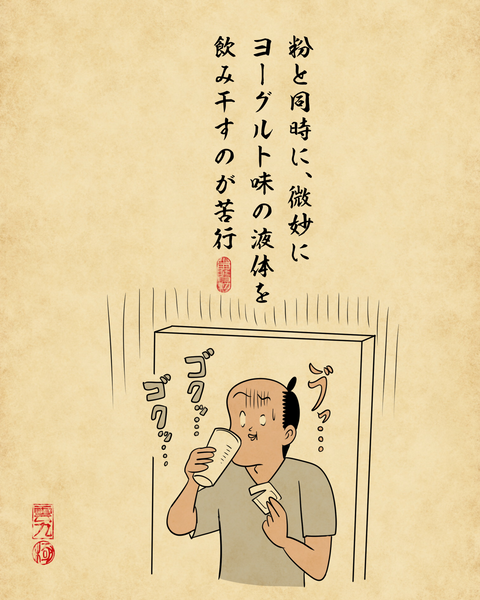 粉と同時に、微妙に
ヨーグルト味の液体を
飲み干すのが苦行
ゴクッ…
ゴクッ…
ヴッ…